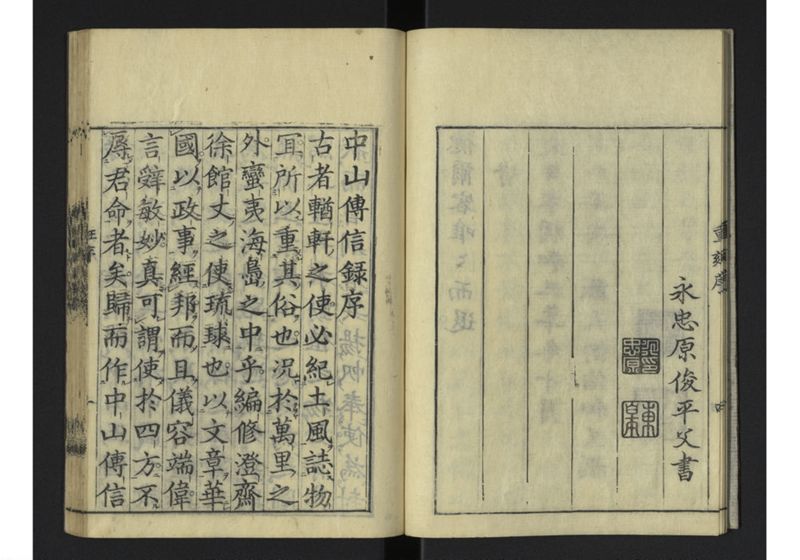 永忠原俊平父書
重刻序
中山傳信録序
古者輶軒之使必紀土風誌物
冝所以重其俗也况於萬里之
外蠻夷海島之中乎編修澄齋
徐館丈之使琉球也以文章華
國以政事經邦而且儀容端偉
言辭敏妙真可謂使於四方不
辱君命者矣歸而作中山傳信
汪序